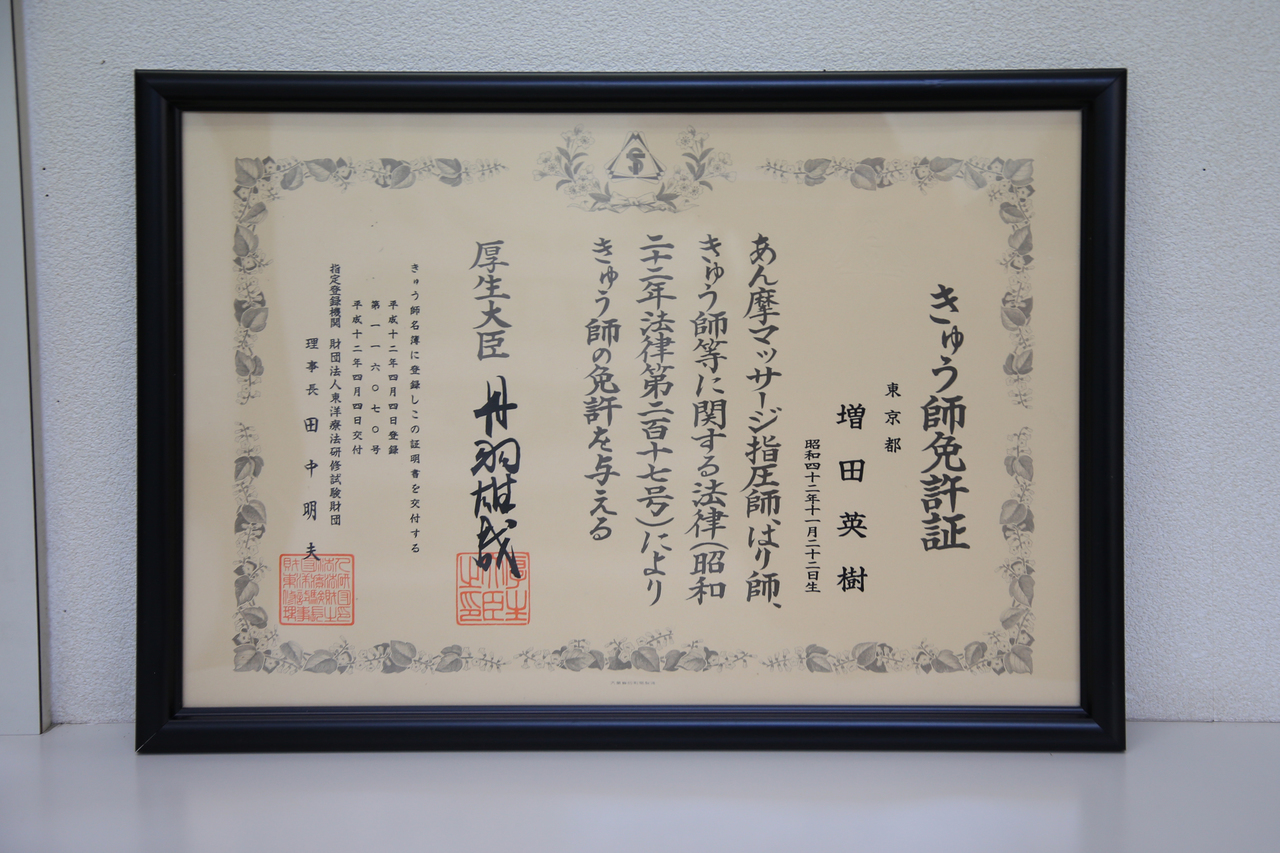 きゅう師免許証
東京都
増田英樹
昭和四十二年十一月二十二日生
あん摩マッサージ指圧師、はり師、
きゅう師等に関する法律(昭和
二十二年法律第二百十七号)により
きゅう師の免許を与える
厚生大臣 丹羽雄哉
厚生大臣之印
きゅう師名簿に登録しこの証明書を交付する
平成十二年四月四日登録
第一一六〇七〇号
平成十二年四月四日交付
指定登録機関 財団法人東洋療法研修試験財団
理事長 田中明夫